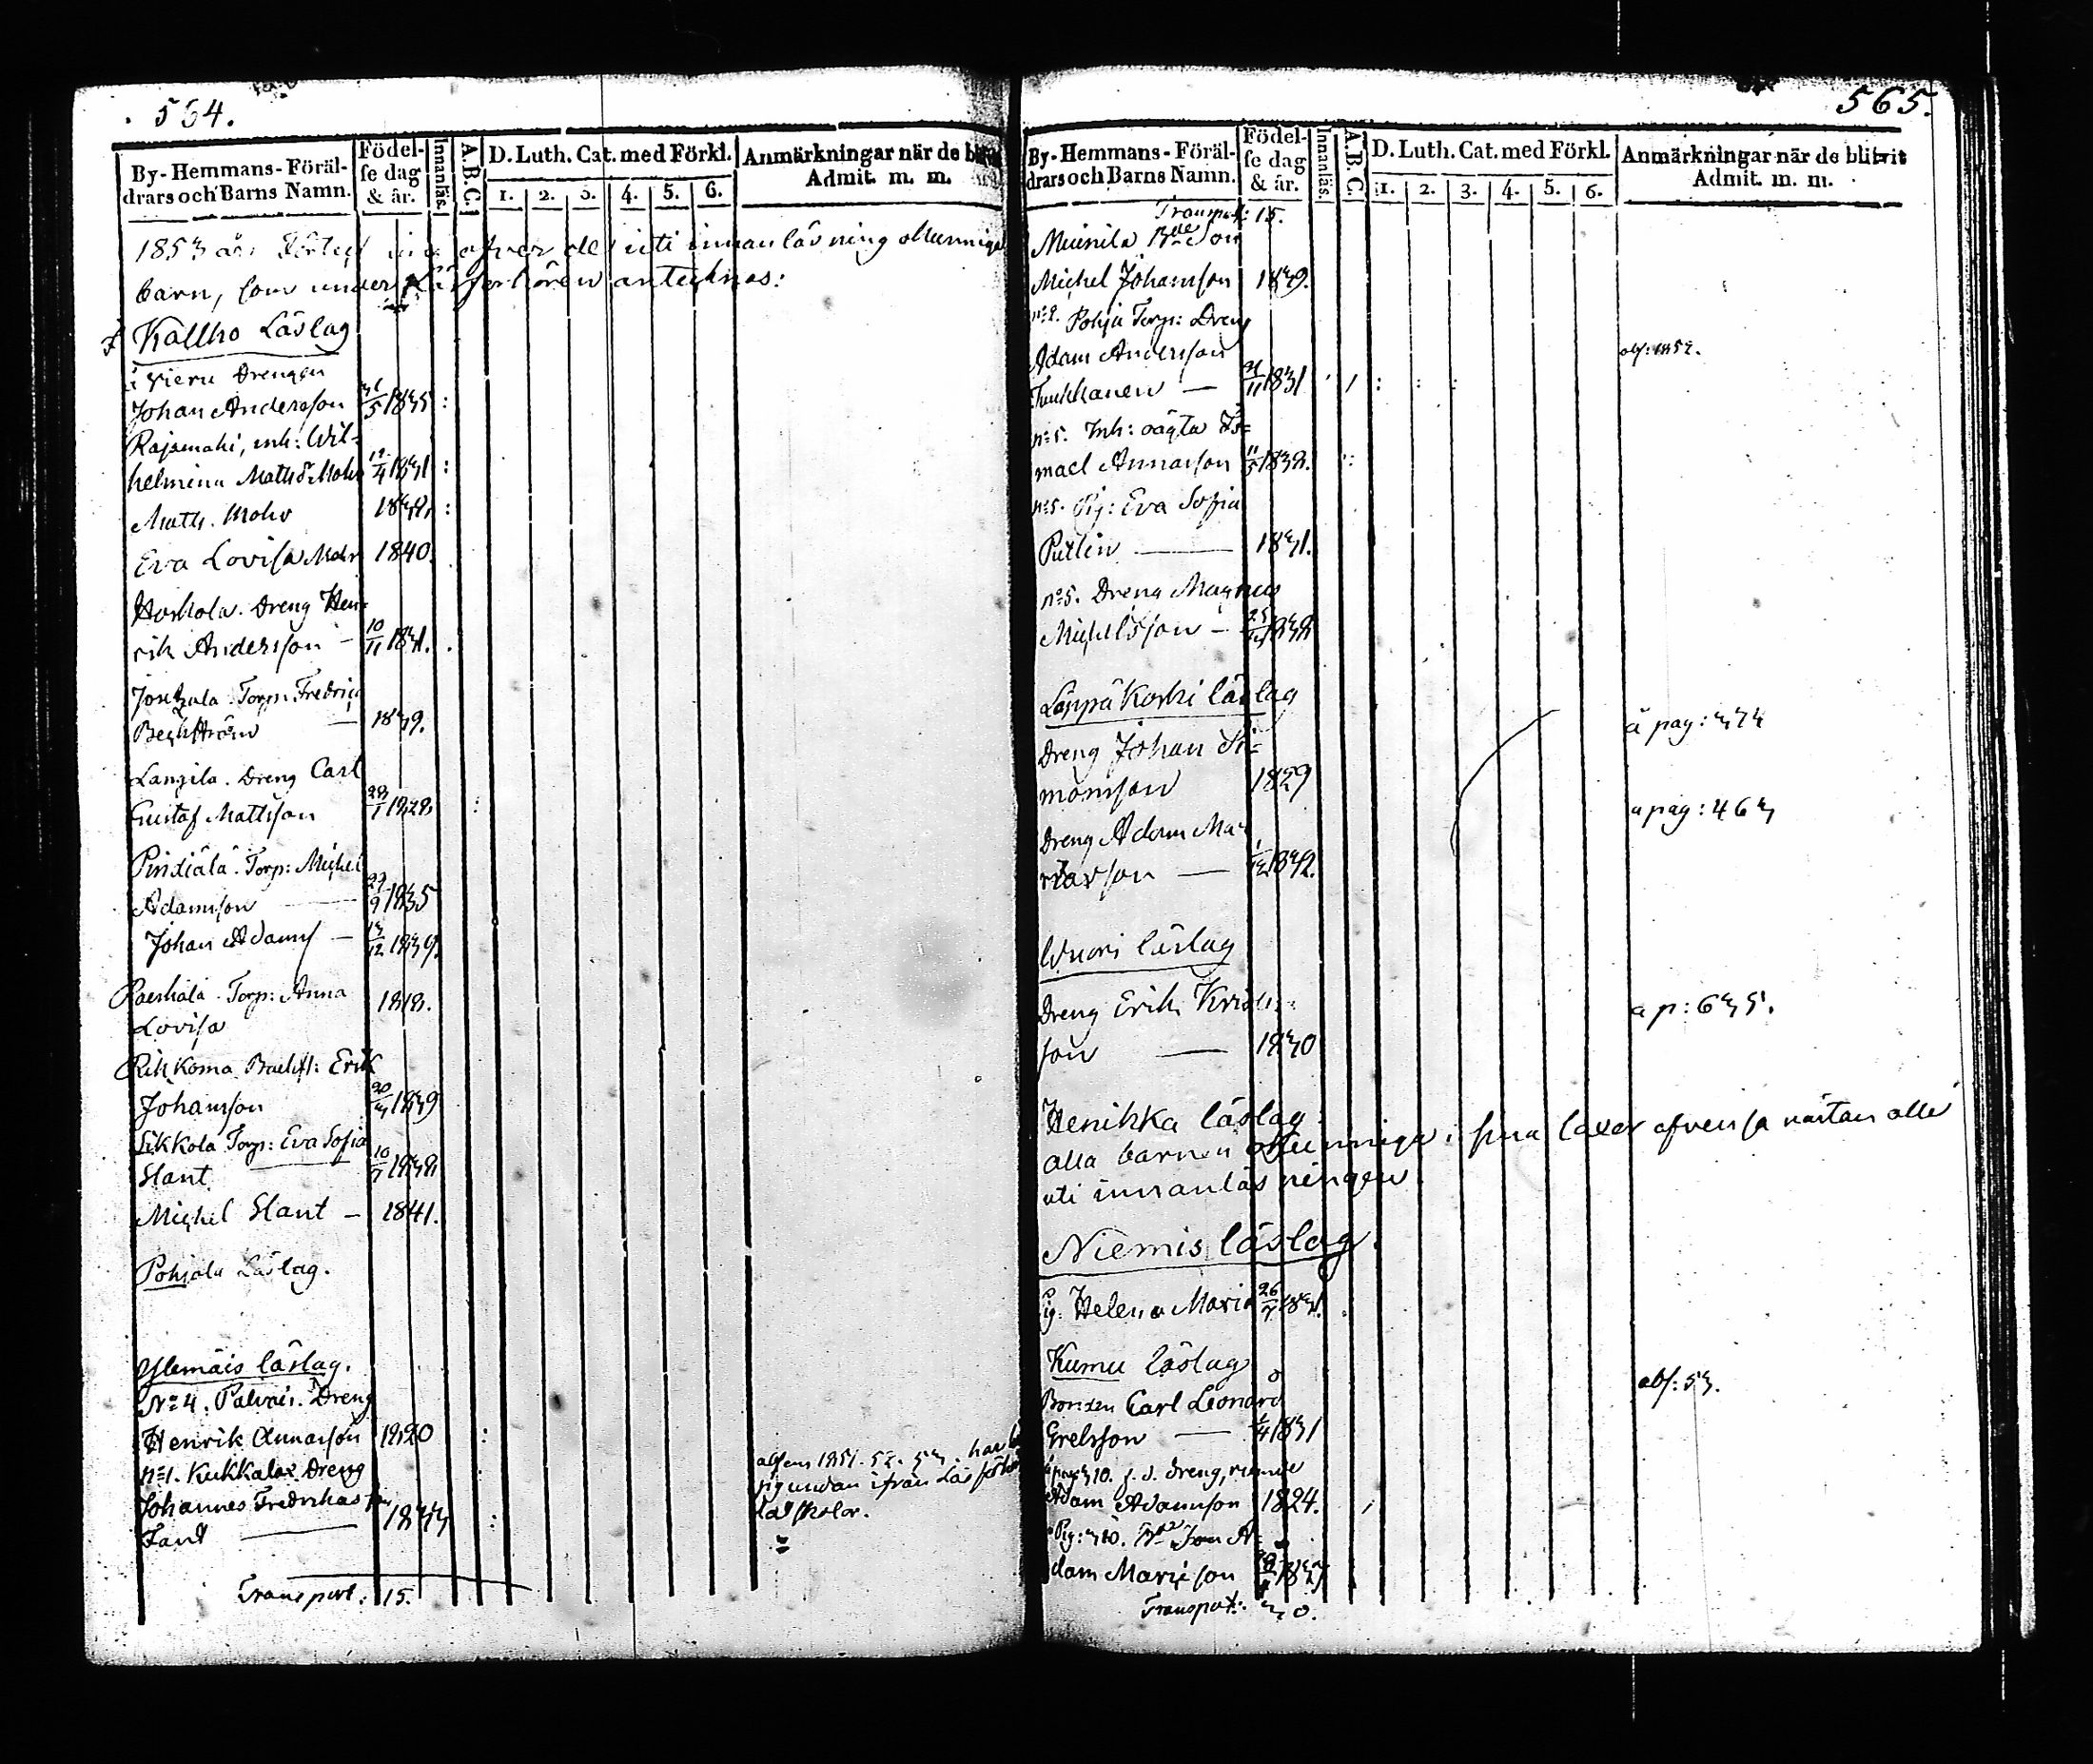 564.
By-Hemmans-Föräl-
drars och Barns Namn.
Födel-
se dag
& år.
Innanläs.
A.B.C.
D. Luth. Cat. med Förkl.
1. 2. 3. 4. 5. 6.
Anmärkningar när de
Admit. m. m.
1853 års öfver de uti innanläsning okunniga
barn, som under Läsförhören antecknas:
Kallho Läslag
Vieru Drengen
Johan Andersson 31/5 1835 :
Rajsmahi, inh: Wil-
helmina Mathsdr Mohr 12/4 1831 :
Math. Mohr 1838 :
Eva Lovisa Mohr 1840.
Horhola. Dreng Hen-
rik Andersson – 10/11 1831.
Torp: Fredric
Beckström – 1839.
Langila. Dreng Carl
Gustaf Mattsson 28/1 1828 :
Pindiälä. Torp: Michel
Adamsson 29/9 1835
Johan Adamss – 13/12 1839.
Paerhälä. Torp: Anna
Lovisa 1818.
Rikkoma Erik
Johansson 20/3 1839
Sikkola Torp: Eva Sofia
Slant 10/7 1838
Michel Slant – 1841.
Pohjola Läslag.
Ylemäis läslag.
No 4. Palvais. Dreng
Henrik Annasson 1820 :
No 1. Kukkalax Dreng
Johannes Fredrikasson
Fant 1833 :
absens 1851. 52. 53.
sig undan ifrån Läsförhör
skolor.
Transport: 15.
565.
By-Hemmans-Föräl-
drars och Barns Namn.
Födel-
se dag
& år.
Innanläs.
A.B.C.
D. Luth. Cat. med Förkl.
1. 2. 3. 4. 5. 6.
Anmärkningar när de blifvit
Admit. m. m.
Transport: 15.
Munila Bde Son
Michel Johansson 1839.
No 2. Pohja Torp: Dreng
Adam Andersson abs: 1852.
Tuukkanen – 21/11 1831
No 5. Inh: oägta Is-
mael Annasson 11/5 1832.
No 5. Pig: Eva Sofia
Putlin 1831.
No 5. Dreng Magnus
Michelsson – 1838
Läppäkoski läslag
Dreng Johan Si- à pag: 374
monsson 1829
Dreng Adam Ma- a pag: 463
riasson – 1832.
Wuori läslag
Dreng Erik a p: 635.
son – 1830
Henikka läslag:
alla barnen okunniga i sina laxor afven så nästan alle
uti innanläsningen.
Niemis läslag.
Pig. Helena Maria 26/7 1831.
Kumu läslag
Bonden Carl Leonard abs: 53.
Grelsson – 1/4 1831
Adam Adamsson 1824.
dam Mariæson
Transport: 30.